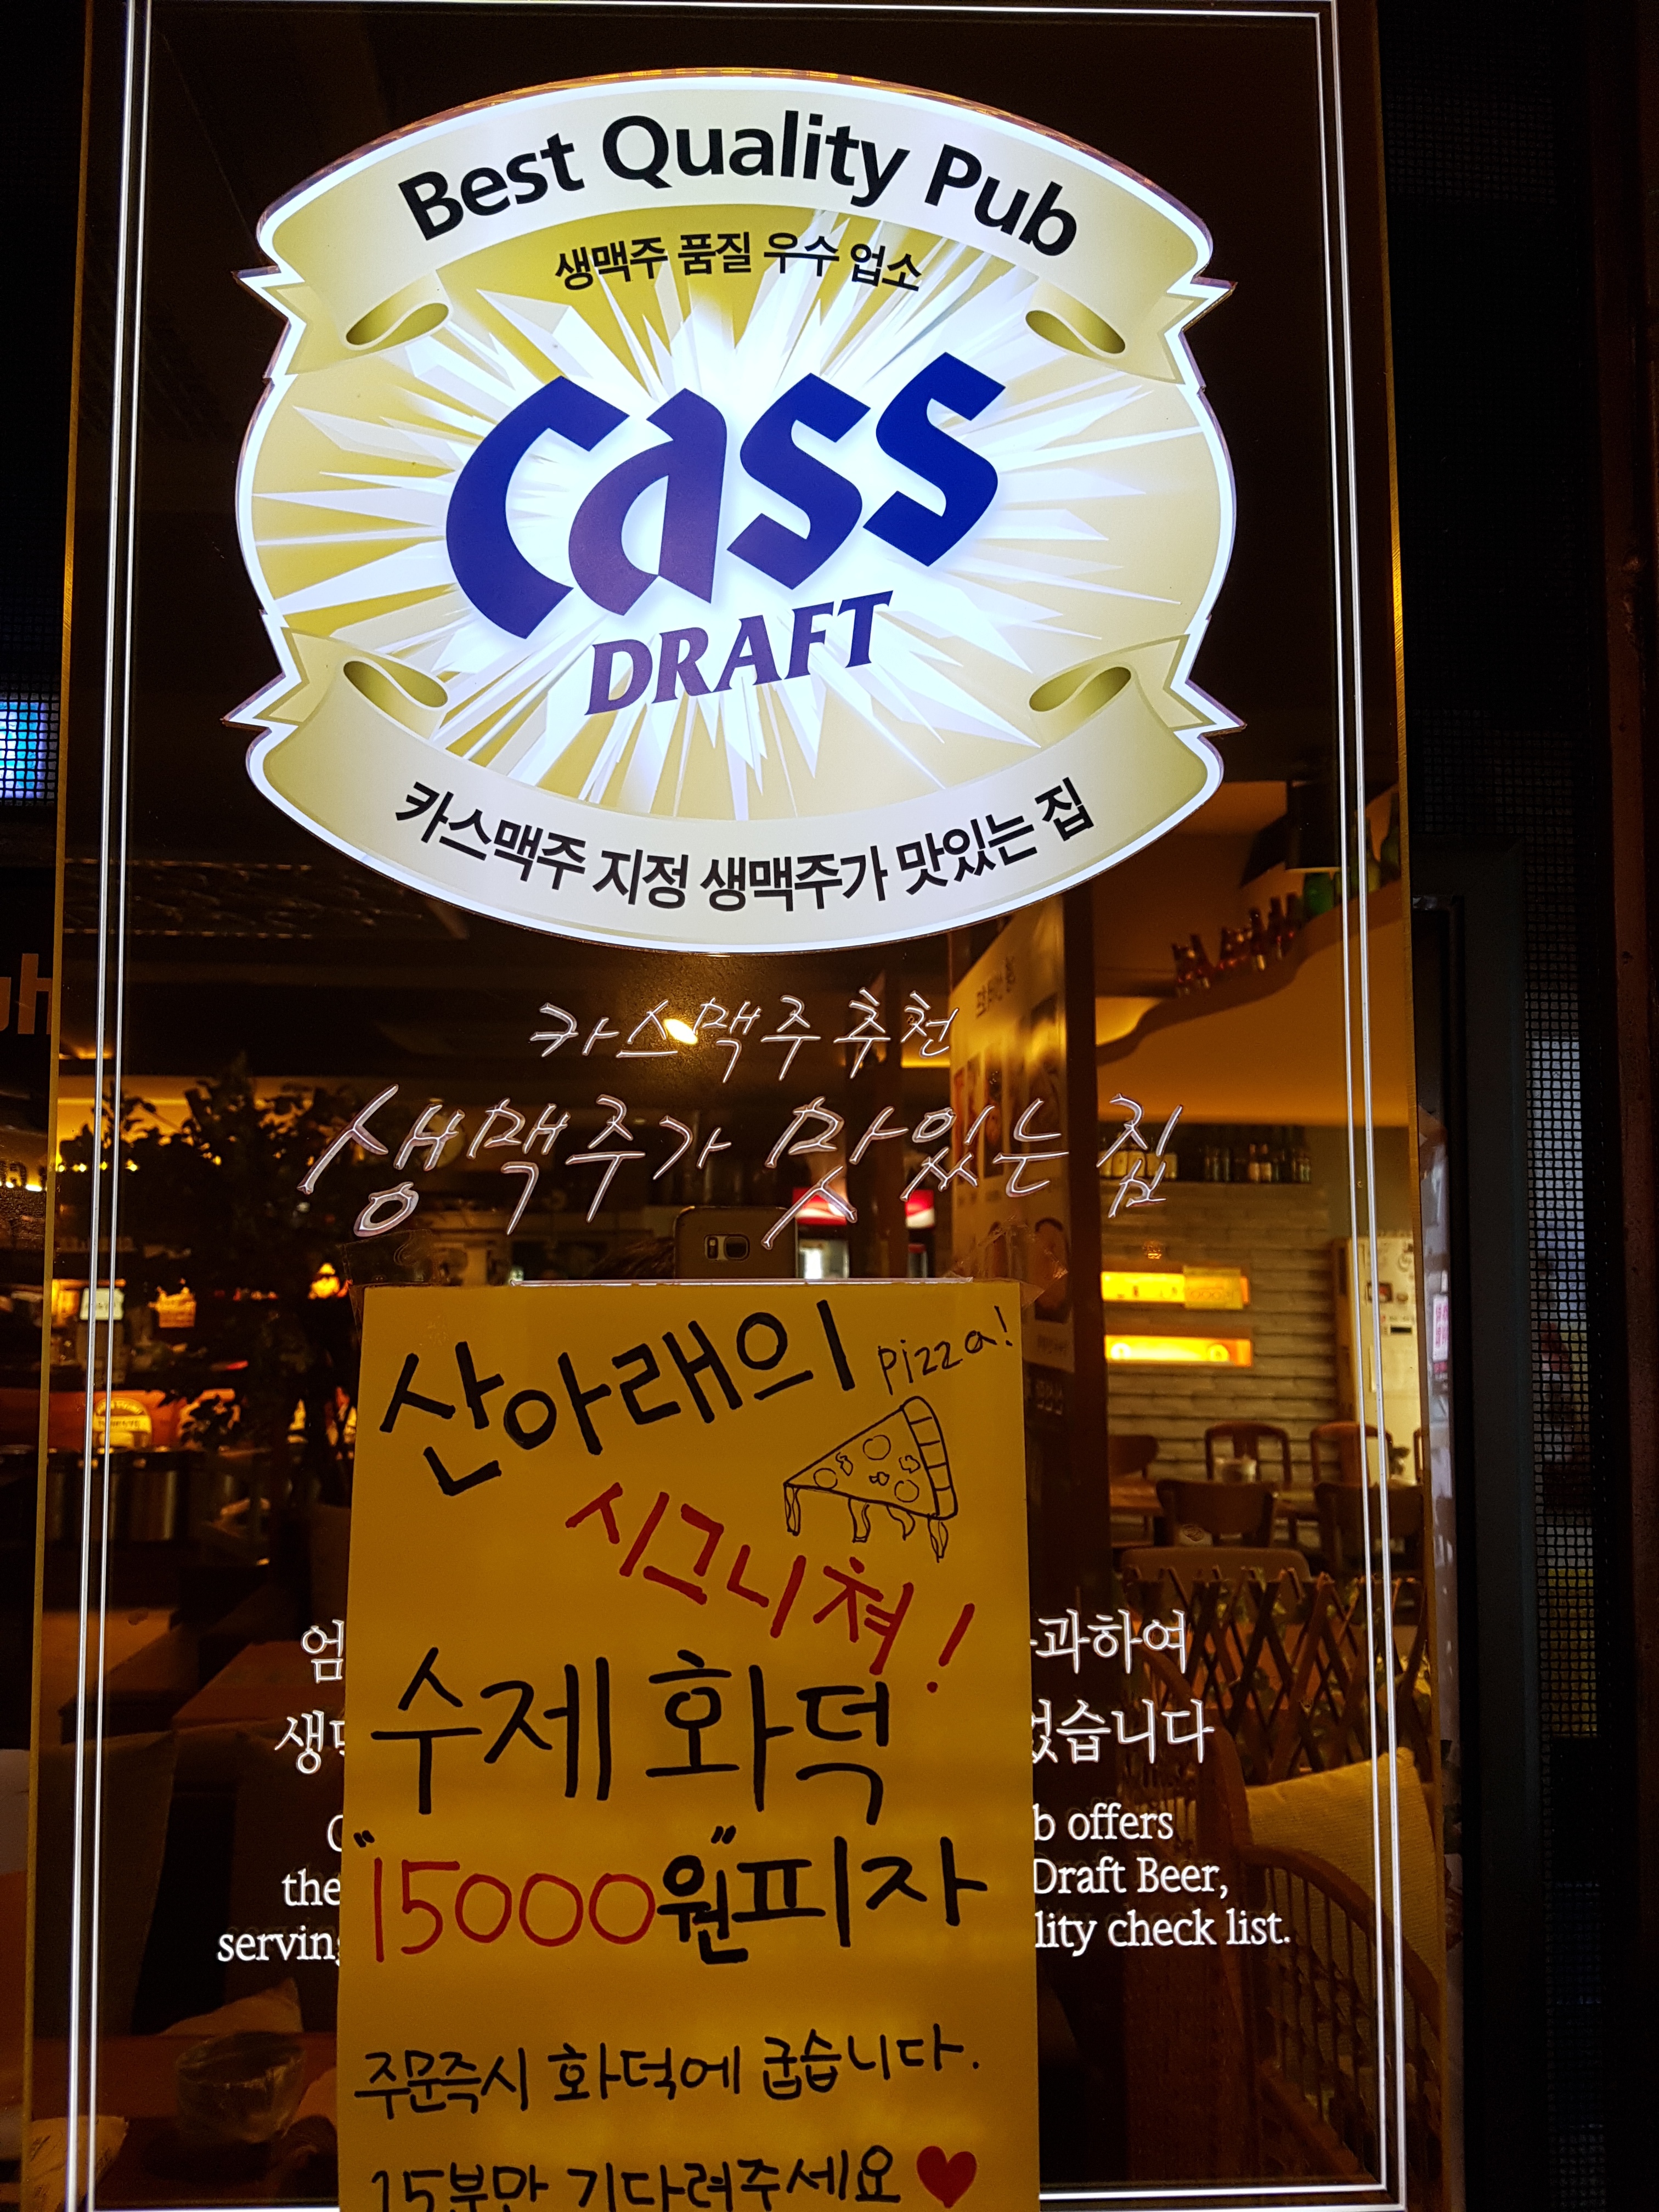 Best Quality Pub
생맥주 품질 우수 업소
Cass
DRAFT
카스맥주 지정 생맥주가 맛있는 집
카스맥주 추천
생맥주가 맛있는 집
산아래의 pizza!
시그니쳐!
수제 화덕
"15000원"피자
주문즉시 화덕에 굽습니다.
15분만 기다려주세요♥
과하여
습니다
offers
the Draft Beer,
check list.